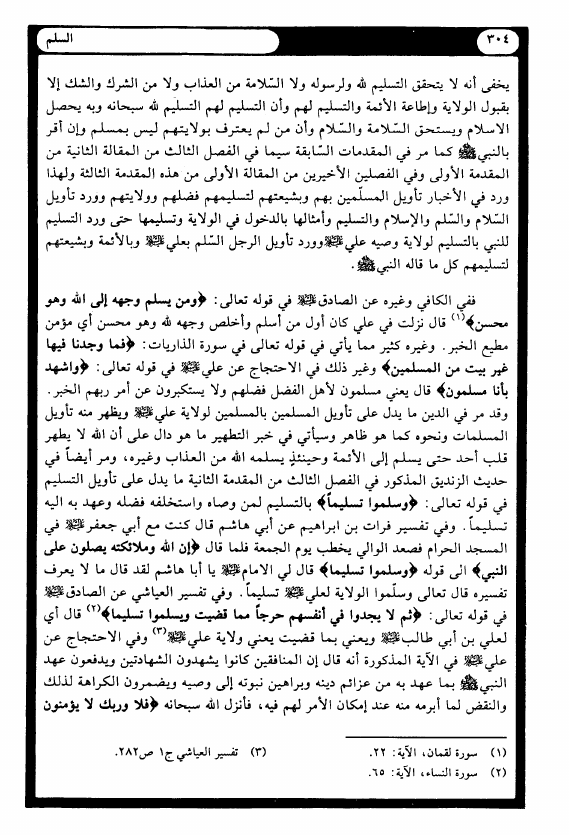 ٣٠٤
السلم
يخفى أنه لا يتحقق التسليم لله ولرسوله ولا السّلامة من العذاب ولا من الشرك والشك إلا
بقبول الولاية وإطاعة الأئمة والتسليم لهم وأن التسليم لهم التسليم لله سبحانه وبه يحصل
الاسلام ويستحق السّلامة والسّلام وأن من لم يعترف بولايتهم ليس بمسلم وإن أقر
بالنبي ﷺ كما مر في المقدمات السّابقة سيما في الفصل الثالث من المقالة الثانية من
المقدمة الأولى وفي الفصلين الأخيرين من المقالة الأولى من هذه المقدمة الثالثة ولهذا
ورد في الأخبار تأويل المسلّمين بهم وبشيعتهم لتسليمهم فضلهم وولايتهم وورد تأويل
السّلام والسّلم والإسلام والتسليم وأمثالها بالدخول في الولاية وتسليمها حتى ورد التسليم
للنبي بالتسليم لولاية وصيه علي عليه السلام وورد تأويل الرجل السّلم بعلي عليه السلام وبالأئمة وبشيعتهم
لتسليمهم كل ما قاله النبي ﷺ.
ففي الكافي وغيره عن الصادق عليه السلام في قوله تعالى: ﴿ومن يسلم وجهه إلى الله وهو
محسن﴾(١) قال نزلت في علي كان أول من أسلم وأخلص وجهه لله وهو محسن أي مؤمن
مطيع الخبر. وغيره كثير مما يأتي في قوله تعالى في سورة الذاريات: ﴿فما وجدنا فيها
غير بيت من المسلمين﴾ وغير ذلك في الاحتجاج عن علي عليه السلام في قوله تعالى: ﴿واشهد
بأنا مسلمون﴾ قال يعني مسلمون لأهل الفضل فضلهم ولا يستكبرون عن أمر ربهم الخبر.
وقد مر في الدين ما يدل على تأويل المسلمين بالمسلمين لولاية علي عليه السلام ويظهر منه تأويل
المسلمات ونحوه كما هو ظاهر وسيأتي في خبر التطهير ما هو دال على أن الله لا يطهر
قلب أحد حتى يسلم إلى الأئمة وحينئذٍ يسلمه الله من العذاب وغيره، ومر أيضاً في
حديث الزنديق المذكور في الفصل الثالث من المقدمة الثانية ما يدل على تأويل التسليم
في قوله تعالى: ﴿وسلموا تسليماً﴾ بالتسليم لمن وصاه واستخلفه فضله وعهد به اليه
تسليماً. وفي تفسير فرات بن ابراهيم عن أبي هاشم قال كنت مع أبي جعفر عليه السلام في
المسجد الحرام فصعد الوالي يخطب يوم الجمعة فلما قال ﴿إن الله وملائكته يصلون على
النبي﴾ الى قوله ﴿وسلموا تسليما﴾ قال لي الامام عليه السلام يا أبا هاشم لقد قال ما لا يعرف
تفسيره قال تعالى وسلّموا الولاية لعلي عليه السلام تسليماً. وفي تفسير العياشي عن الصادق عليه السلام
في قوله تعالى: ﴿ثم لا يجدوا في أنفسهم حرجاً مما قضيت ويسلموا تسليما﴾(٢) قال أي
لعلي بن أبي طالب عليه السلام ويعني بما قضيت يعني ولاية علي عليه السلام(٣) وفي الاحتجاج عن
علي عليه السلام في الآية المذكورة أنه قال إن المنافقين كانوا يشهدون الشهادتين ويدفعون عهد
النبي ﷺ بما عهد به من عزائم دينه وبراهين نبوته إلى وصيه ويضمرون الكراهة لذلك
والنقض لما أبرمه منه عند إمكان الأمر لهم فيه، فأنزل الله سبحانه ﴿فلا وربك لا يؤمنون
(١) سورة لقمان، الآية: ٢٢.
(٢) سورة النساء، الآية: ٦٥.
(٣) تفسير العياشي ج١ ص٢٨٢.